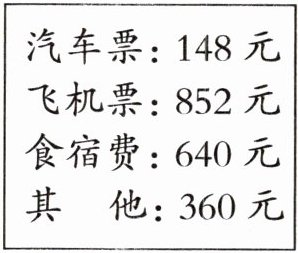 汽车票：148 元
飞机票：852 元
食宿费：640 元
其　他：360 元